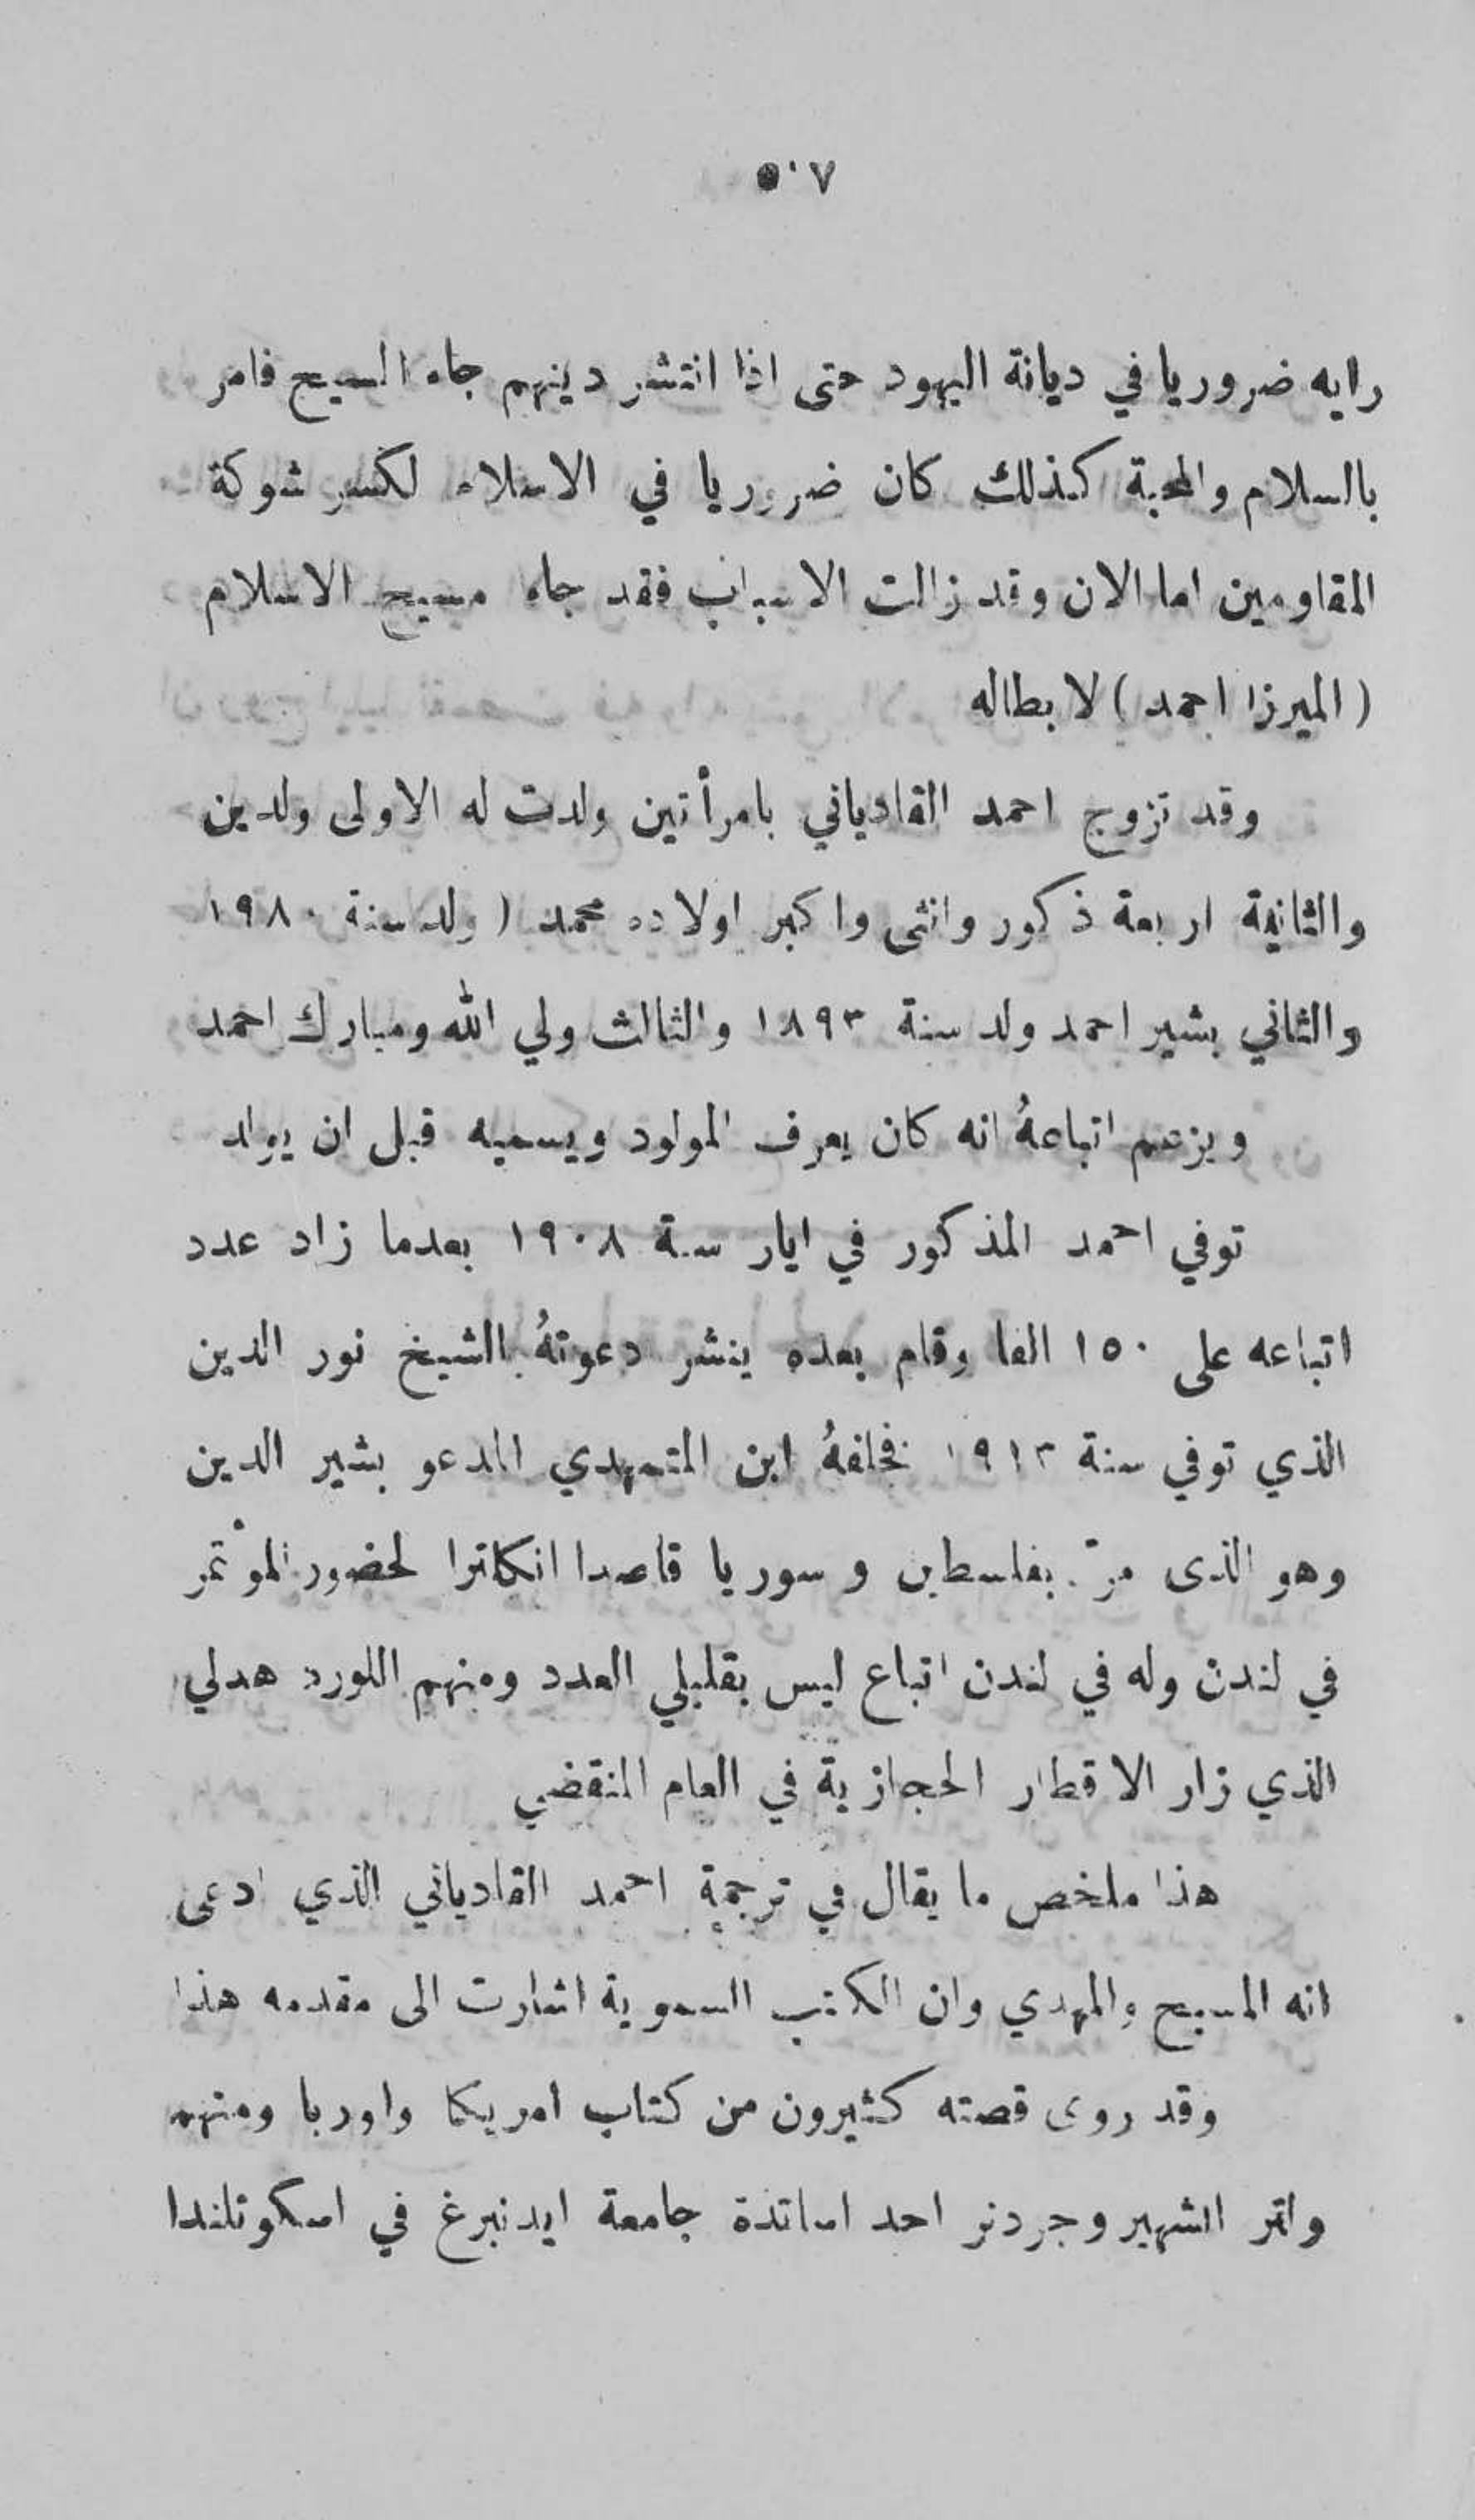 ٥٠٧
رايه ضروريا في ديانة اليهود حتى اذا انتشر دينهم جاء المسيح فامر
بالسلام والمحبة كذلك كان ضروريا في الاسلام لكسر شوكة
المقاومين اما الان وقد زالت الاسباب فقد جاء مسيح الاسلام
(الميرزا احمد) لابطاله
وقد تزوج احمد القادياني بامرأتين ولدت له الاولى ولدين
والثانية اربعة ذكور وانثى واكبر اولاده محمد (ولد سنة ١٩٨٠
والثاني بشير احمد ولد سنة ١٨٩٣ والثالث ولي الله ومبارك احمد
ويزعم اتباعهُ انه كان يعرف المولود ويسميه قبل ان يولد
توفي احمد المذكور في ايار سنة ١٩٠٨ بعدما زاد عدد
اتباعه على ١٥٠ الفا وقام بعده ينشر دعوتهُ الشيخ نور الدين
الذي توفي سنة ١٩١٣ فخلفهُ ابن المتمهدي المدعو بشير الدين
وهو الذى مرّ بفلسطين وسوريا قاصدا انكلترا لحضور المؤتمر
في لندن وله في لندن اتباع ليس بقليلي العدد ومنهم اللورد هدلي
الذي زار الاقطار الحجازية في العام المنقضي
هذا ملخص ما يقال في ترجمة احمد القادياني الذي ادعى
انه المسيح والمهدي وان الكتب السموية اشارت الى مقدمه هذا
وقد روى قصته كثيرون من كتاب امريكا واوربا ومنهم
ولتر الشهير وجردنر احد اساتذة جامعة ايدنبرغ في اسكوتلندا